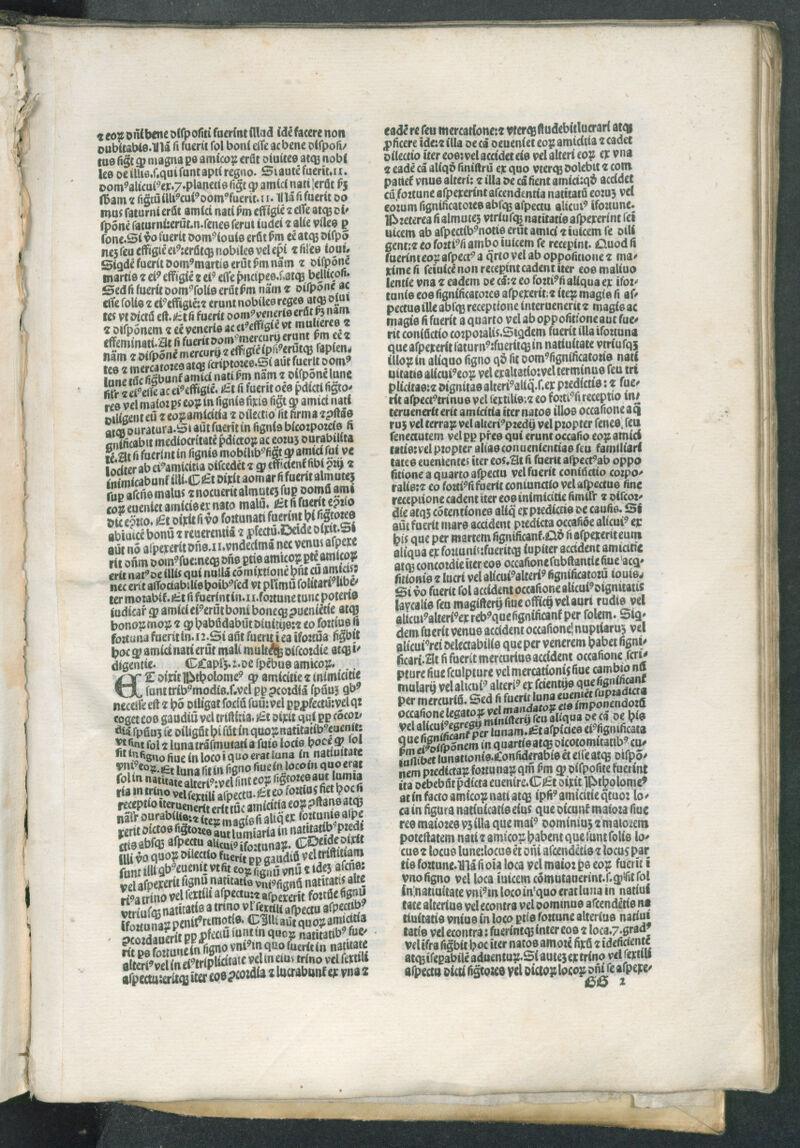 ⁊ eoꝝ dñi bene dispositi fuerint illud idē facere non
dubitabis. Nā si fuerit sol boni esse ac bene disposi-
tus sigͭ ꝙ magna ps amicoꝝ erūt diuites atqꝫ nobi
les de illis .s. qui sunt apti regno. Si autē fuerit .11.
domꝰ alicuiꝰ ex .7. planetis sigͭ ꝙ amici nati erūt ẜm
sbam ⁊ signū illiꝰ cuiꝰ domꝰ fuerit .11. Nā si fuerit do
mus saturni erūt amici nati ẜm effigiē ⁊ esse atqꝫ di-
spōnē saturni: erūt .n. senes serui iudei ⁊ alie viles ꝑ
sone. Si ṽo fuerit domꝰ iouis erūt ẜm eē atqꝫ dispō
neꝫ seu effigiē eiꝰ: erūtqꝫ nobiles vel epi ⁊ siles ioui.
Siqdē fuerit domꝰ martis erūt ẜm nām ⁊ dispōnē
martis ⁊ eiꝰ effigiē ⁊ eiꝰ esse pncipes .s. atqꝫ bellicosi.
Sed si fuerit domꝰ solis erūt ẜm nām ⁊ dispōnē ac
esse solis ⁊ eiꝰ effigiē: ⁊ erunt nobiles reges atqꝫ diui
tes vt dictū est. Et si fuerit domꝰ veneris erūt ẜm nām
⁊ dispōnem ⁊ eē veneris ac eiꝰ effigiē vt mulieres ⁊
effeminati. At si fuerit domꝰ mercurij erunt ẜm eē ⁊
nām ⁊ dispōnē mercurij ⁊ effigiē ipsiꝰ: erūtqꝫ sapien-
tes ⁊ mercatores atqꝫ scriptores. Si aūt fuerit domꝰ
lune tūc sigͭbunt amici nati ẜm nām ⁊ dispōnē lune
silr ⁊ eiꝰ esse ac eiꝰ effigiē. Et si fuerit oēs pdicti sigͭto-
res vel maior ps eoꝝ in signis fixis sigͭ ꝙ amici nati
diligent eū ⁊ eoꝝ amicitia ⁊ dilectio sit firma ⁊ ꝯstās
atqꝫ duratura. Si aūt fuerit in signis bicorporeis si
gnificabit mediocritatē pdictoꝝ ac eorum durabilita
tē. At si fuerint in signis mobilibꝰ sigͭ ꝙ amici sui ve
lociter ab eiꝰ amicitia discedēt ⁊ ꝙ efficient sibi ꝯrij ⁊
inimicabunt illi. ¶ Et dixit aomar si fuerit almuteꝫ
sup ascns malus ⁊ nocuerit almuteꝫ sup domū ami
coꝝ eueniet amicis ex nato malū. Et si fuerit eꝯrio
dic eꝯrio. Et dixit si ṽo fortunati fuerint hi sigͭtores
abiuicē bonū ⁊ reuerentiā ⁊ ꝓfectū. Deide dixit. Si
aūt nō aspexerit dñs .11. vndecimā nec venus aspexe
rit dñm domꝰ sue: neqꝫ dñs ptis amicoꝝ ptē amicoꝝ
erit natꝰ de illis qui nullā cōmixtionē hñt cū amicis:
nec erit associabilis hoibꝰ sed vt plimū solitariꝰ libē-
ter morabit. Et si fuerint in .11. fortune tunc poteris
iudicar ꝙ amici eiꝰ erūt boni boneqꝫ ꝯuenietie atqꝫ
bonoꝝ moꝝ ⁊ ꝙ habūdabūt diuitijs: ⁊ eo fortius si
fortuna fuerit in .12. Si aūt fuerit i ea ifortūa sigͭbit
hoc ꝙ amici nati erūt mali multeqꝫ discordie atqꝫ i-
digentie. ¶ Capm .2. de spebus amicoꝝ.
ET dixit Ptholomeꝰ ꝙ amicitie ⁊ inimicitie
sunt tribꝰ modis .s. vel pp ꝯcordiā spūuꝫ qbꝰ
necesse est ⁊ hō diligat sociū suū: vel pp ꝓfectū: vel qꝛ
coget eos gaudiū vel tristitia. Et dixit qui pp cōcor-
diā spūuꝫ se diligūt hi sūt in quoꝝ natitatibꝰ euenit:
vt sint sol ⁊ luna trāsmutati a suis locis hoc ē ꝙ sol
sit in signo siue in loco i quo erat luna in natiuitate
vniꝰ eoꝝ. Et luna sit in signo siue in loco in quo erat
sol in natitate alteriꝰ: vel sint eoꝝ sigͭtores aut lumia
ria in trino vel sextili aspectu. Et eo fortius fiet hoc si
receptio iteruenerit erit tūc amicitia eoꝝ ꝯstans atqꝫ
nālr durabilis: ⁊ iteꝝ magis si aliq ex fortunis aspe
xerit dictos sigͭtores aut lumiaria in natitatibꝰ predi
ctis absqꝫ aspectu alicuiꝰ ifortunaꝝ. ¶ Deide dixit
illi ṽo quoꝝ dilectio fuerit pp gaudiū vel tristitiam
sunt illi qbꝰ euenit vt sit eoꝝ signū vnū ⁊ ideꝫ ascns:
vel aspexerit signū natitatis vniꝰ signū natitatis alte
riꝰ a trino vel sextili aspectu: ⁊ aspexerit fortūe signū
vtriusqꝫ natitatis a trino vel sextili aspectu aspectibꝰ
ifortunaꝝ penitꝰ remotis. ¶ Illi aūt quoꝝ amicitia
ꝯcordauerit pp ꝓfectū sunt in quoꝝ natitatibꝰ fue-
rit ps fortune in signo vniꝰ in quo fuerit in natitate
alteriꝰ vel in eiꝰ triplicitate vel in eius trino vel sextili
aspectu: eritqꝫ iter eos ꝯcordia ⁊ lucrabunt ex vna ⁊
eadē re seu mercatione: ⁊ vterqꝫ studebit lucrari atqꝫ
ꝓficere ide: ⁊ illa de cā deueniet eoꝝ amicitia ⁊ cadet
dilectio iter eos: vel accidet eis vel alteri eoꝝ ex vna
⁊ eadē cā aliqd sinistrū ex quo vterqꝫ dolebit ⁊ com
patiet vnus alteri: ⁊ illa de cā fient amici: qd accidet
cū fortune aspexerint ascendentia natitatū eorum vel
eorum significatores absqꝫ aspectu alicuiꝰ ifortune.
Preterea si almuteꝫ vtriusqꝫ natitatis aspexerint sei
uicem ab aspectibꝰ notis erūt amici ⁊ iuicem se dili
gent: ⁊ eo fortiꝰ si ambo iuicem se recepint. Quod si
fuerint eoꝝ aspectꝰ a qrto vel ab oppositione ⁊ ma-
xime si seiuicē non recepint cadent iter eos maliuo
lentie vna ⁊ eadem de cā: ⁊ eo fortiꝰ si aliqua ex ifor-
tunis eos significatores aspexerit: ⁊ iteꝝ magis si as-
pectus ille absqꝫ receptione interuenerit ⁊ magis ac
magis si fuerit a quarto vel ab oppositione aut fue-
rit coniūctio corporalis. Siqdem fuerit illa ifortuna
que aspexerit saturnꝰ: fueritqꝫ in natiuitate vtriusqꝫ
illoꝝ in aliquo signo qd sit domꝰ significatoris nati
uitatis alicuiꝰ eoꝝ vel exaltatio: vel terminus seu tri
plicitas: ⁊ dignitas alteriꝰ aliq .s. ex predictis: ⁊ fue-
rit aspectꝰ trinus vel sextilis: ⁊ eo fortiꝰ si receptio in-
teruenerit erit amicitia iter natos illos occasione aq
rum vel terraꝝ vel alteriꝰ predij vel propter senes, seu
senectutem vel pp pres qui erunt occasio eoꝝ amici
tatis: vel propter alias conuenientias seu familiari
tates euenientes iter eos. At si fuerit aspectꝰ ab oppo
sitione a quarto aspectu vel fuerit coniūctio corpo-
ralis: ⁊ eo fortiꝰ si fuerit coniunctio vel aspectus sine
receptione cadent iter eos inimicitie similr ⁊ discor-
die atqꝫ cōtentiones aliq ex predictis de causis. Si
aūt fuerit mars accident predicta occasiōe alicuiꝰ ex
his que per martem significant. Qd si aspexerit eum
aliqua ex fortunis: fueritqꝫ iupiter accident amicitie
atqꝫ concordie iter eos occasione substantie siue acq-
sitionis ⁊ lucri vel alicuiꝰ alteriꝰ significatorū iouis.
Si ṽo fuerit sol accident occasione alicuiꝰ dignitatis
laycalis seu magisterij siue officij vel auri rudis vel
alicuiꝰ alteriꝰ ex rebꝰ que significant per solem. Siq-
dem fuerit venus accident occasione nuptiarum vel
alicuiꝰ rei delectabilis que per venerem habet signi-
ficari. At si fuerit mercurius accident occasione scri-
pture siue sculpture vel mercationis siue cambio nū
mularij vel alicuiꝰ alteriꝰ ex scientijs que significant
per mercuriū. Sed si fuerit luna eueniet supradicta
occasione legatoꝝ vel mandatoꝝ eis imponendorū
vel alicuiꝰ egregij ministerij seu aliqua de cā de his
que significant per lunam. Et aspicies eiꝰ significata
ẜm eiꝰ dispōnem in quartis atqꝫ dicotomitatibꝰ cu-
iuslibet lunationis. Considerabis et esse atqꝫ dispō-
nem predictaꝝ fortunaꝝ qm ẜm ꝙ disposite fuerint
ita debebūt pdicta euenire. ¶ Et dixit Ptholomeꝰ
at in facto amicoꝝ nati atqꝫ ipsiꝰ amicitie qtuor lo-
ca in figura natiuitatis eius que dicunt maiora siue
res maiores vꝫ illa que maiꝰ dominiuꝫ ⁊ maiorem
potestatem nati ⁊ amicoꝝ habent que sunt solis lo-
cus ⁊ locus lune: locus et dñi ascendētis ⁊ locus par
tis fortune. Nā si oia loca vel maior ps eoꝝ fuerit i
vno signo vel loca iuicem cōmutauerint .s. ꝙ sit sol
in natiuitate vniꝰ in loco in quo erat luna in natiui
tate alterius vel econtra vel dominus ascendētis na
tiuitatis vnius in loco ptis fortune alterius natiui
tatis vel econtra: fuerintqꝫ inter eos ⁊ loca .7. gradꝰ
vel ifra sigͭbit hoc iter natos amorē fixū ⁊ ideficientē
atqꝫ iseꝑabilē aduenturum. Si auteꝫ ex trino vel sextili
aspectu dicti sigͭtores vel dictoꝝ locoꝝ dñi se aspexe-
GG 2